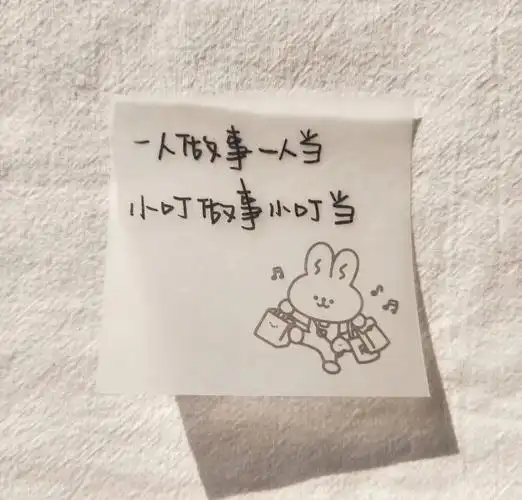 一人做事一人当
小叮做事小叮当